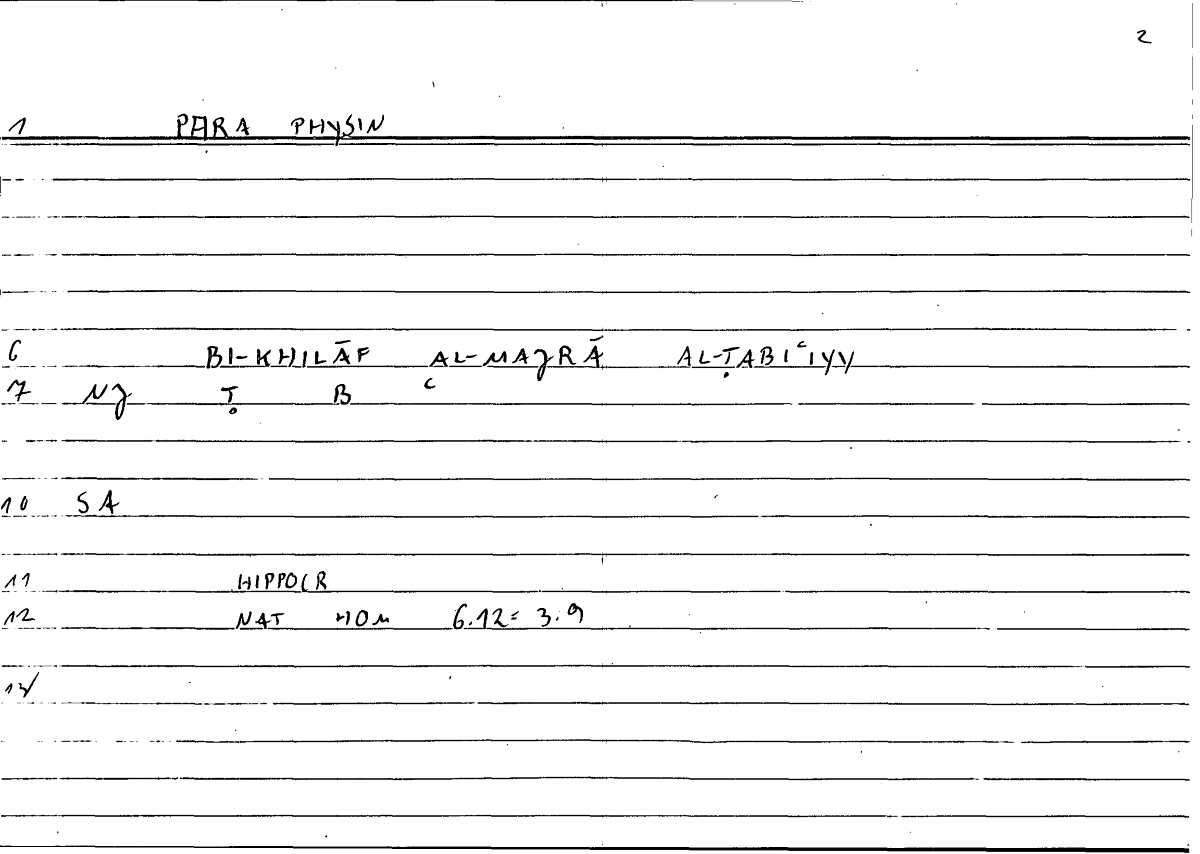 2
1 PARA PHYSIN
6 BI-KHILĀF AL-MAJRĀ AL-ṬABIʿIYY
7 NJ Ṭ B ʿ
10 SA
11 HIPPOCR
12 NAT HOM 6.12= 3.9
13/